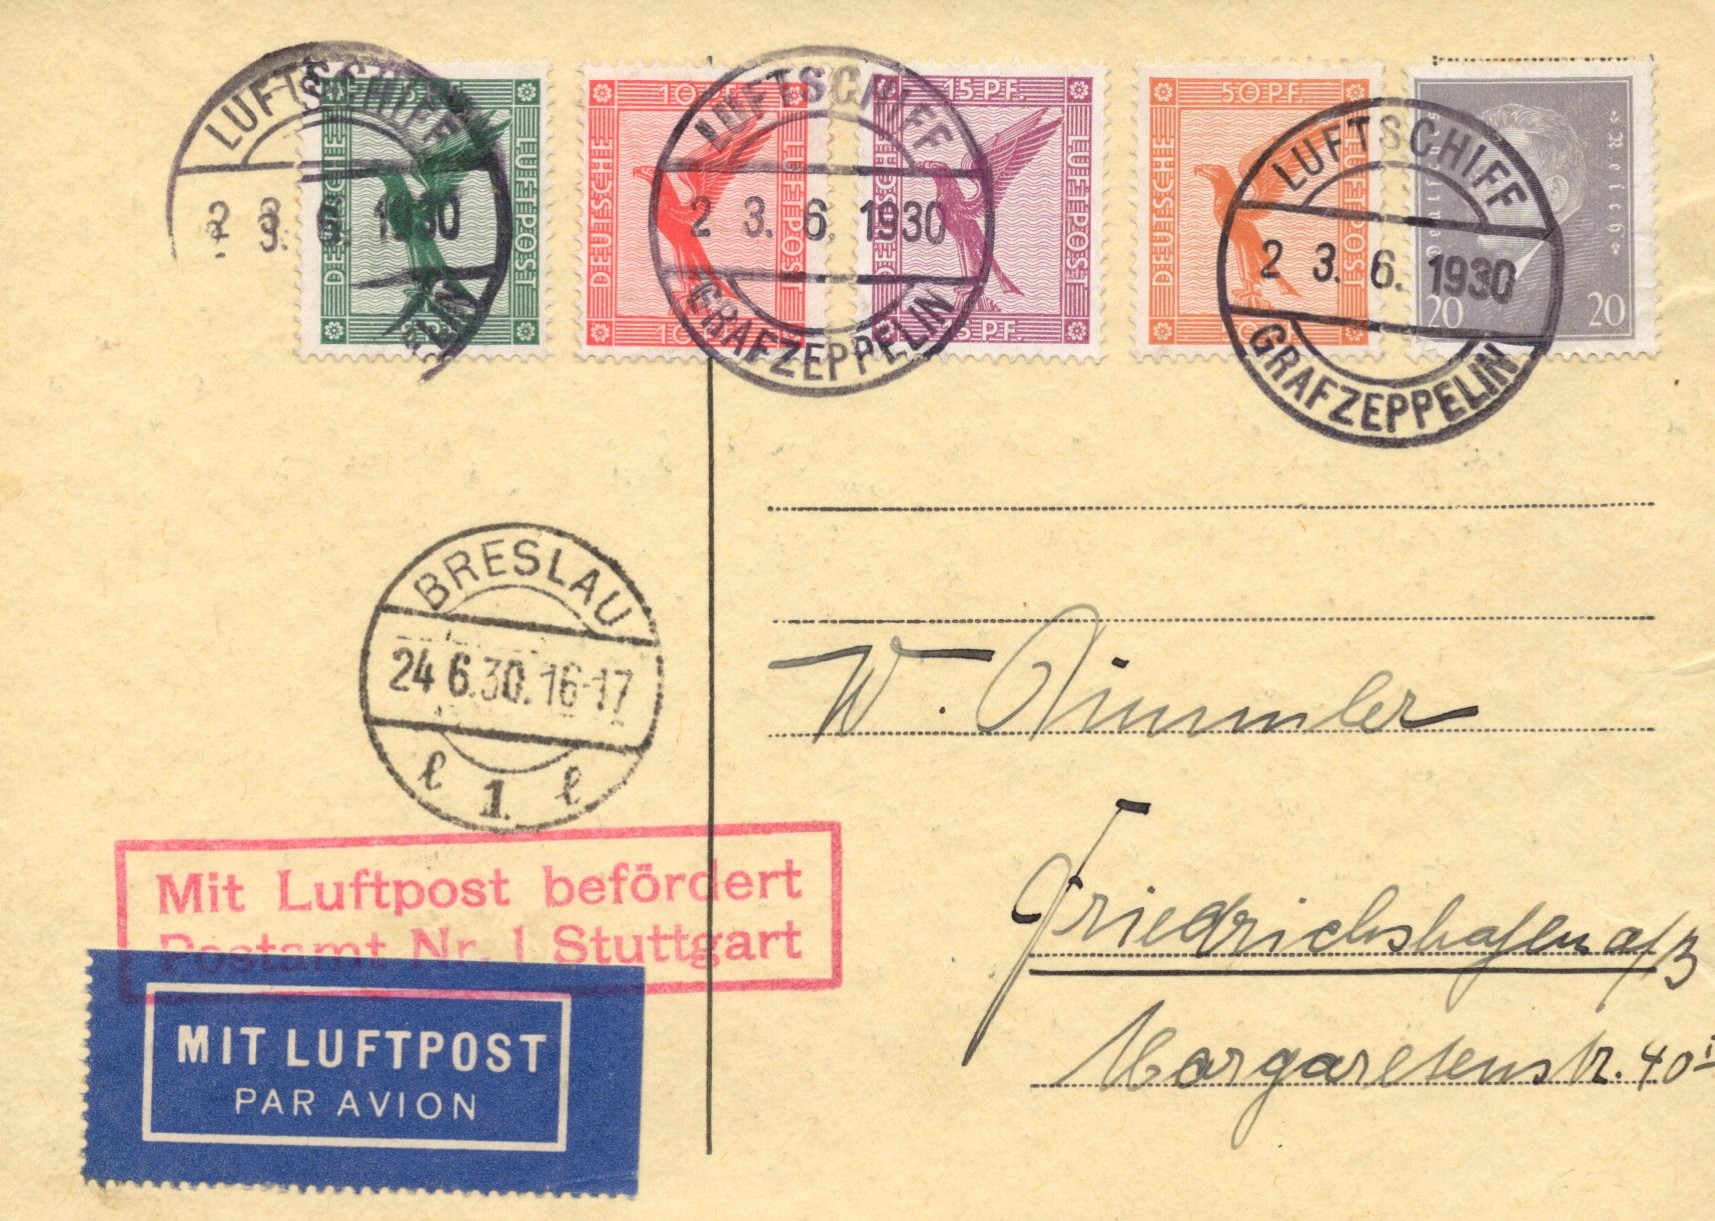 LUFTSCHIFF
2 3. 6. 1930
DEUTSCHE
LUFTPOST
LUFTSCHIFF
2 3. 6. 1930
GRAFZEPPELIN
10 PF.
DEUTSCHE
LUFTPOST
15 PF.
LUFTPOST
15 PF.
LUFTSCHIFF
2 3. 6. 1930
GRAFZEPPELIN
50 PF.
DEUTSCHE
LUFTPOST
Deutsches
Reich
20
20
BRESLAU
24 6.30. 16-17
l 1. l
Mit Luftpost befördert
Postamt Nr. 1 Stuttgart
MIT LUFTPOST
PAR AVION
W. Rimmler
Friedrichshafen a/B
Margaretenstr. 40